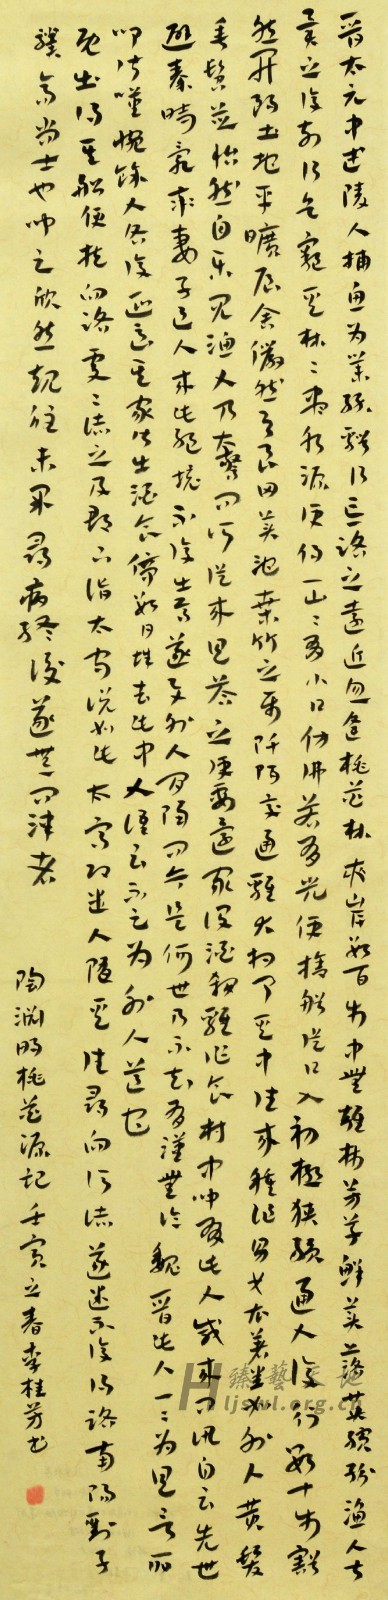 晉太元中武陵人捕魚為業緣谿行忘路之遠近忽逢桃花林夾岸數百步中無雜樹芳草鮮美落英繽紛漁人甚
異之復前行欲窮其林林盡水源便得一山山有小口仿佛若有光便捨船從口入初極狹纔通人復行數十步豁
然開朗土地平曠屋舍儼然有良田美池桑竹之屬阡陌交通雞犬相聞其中往來種作男女衣著悉如外人黃髮
垂髫並怡然自樂見漁人乃大驚問所從來具答之便要還家設酒殺雞作食村中聞有此人咸來問訊自云先世
避秦時亂率妻子邑人來此絕境不復出焉遂與外人間隔問今是何世乃不知有漢無論魏晉此人一一為具言所
聞皆嘆惋餘人各復延至其家皆出酒食停數日辭去此中人語云不足為外人道也
既出得其船便扶向路處處誌之及郡下詣太守說如此太守即遣人隨其往尋向所誌遂迷不復得路南陽劉子
驥高尚士也聞之欣然規往未果尋病終後遂無問津者
陶淵明桃花源記壬寅立春李桂芳書
ljswl.org.cn